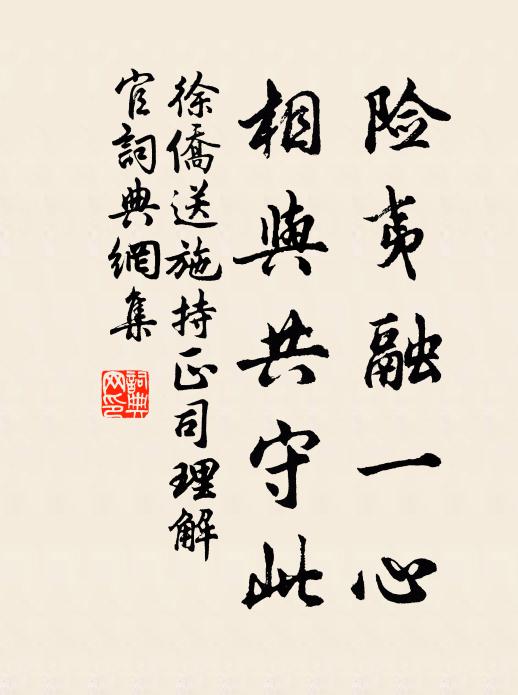 险夷融一心
相與共守此
徐僑送施持正司理解
官詞典網集
詞典
网印